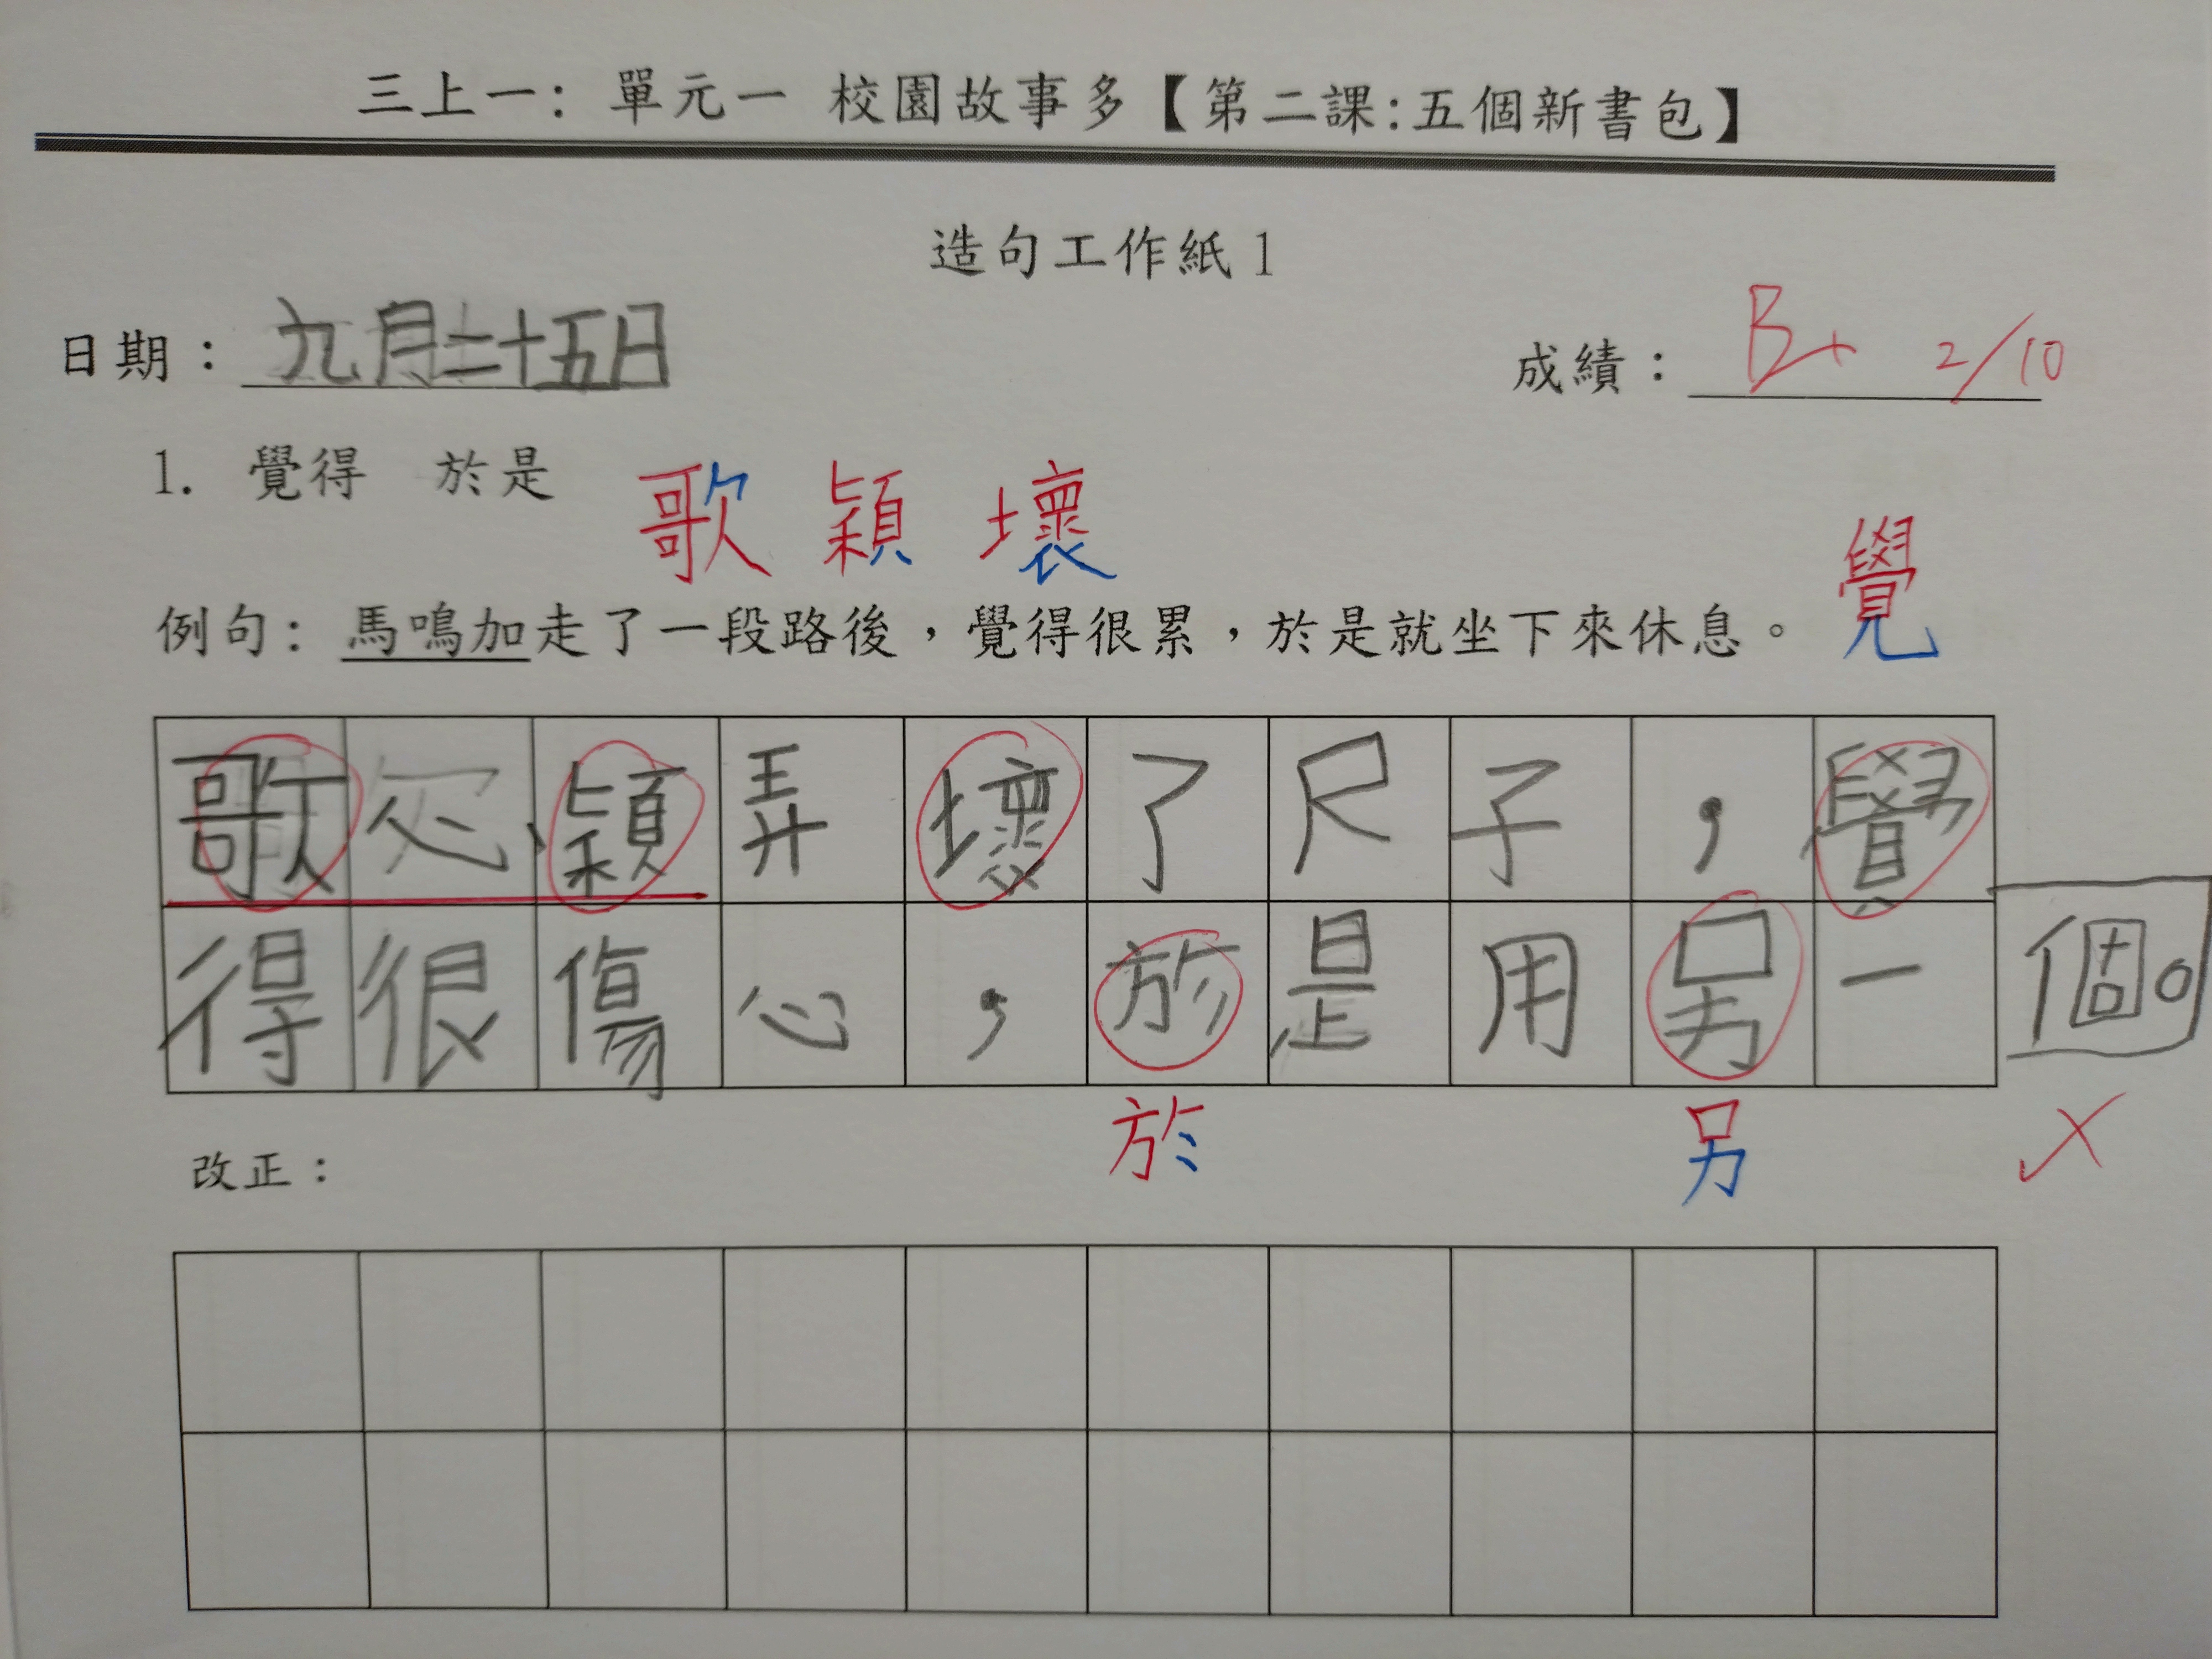 三上一：單元一 校園故事多【第二課:五個新書包】
造句工作紙1
日期：九月二十五日 成績：B+ 2/10
1. 覺得 於是
歌 穎 壞 覺
例句：馬鳴加走了一段路後，覺得很累，於是就坐下來休息。
歌心穎弄壞了尺子，覺
得很傷心，於是用另一個。
於 另
改正：